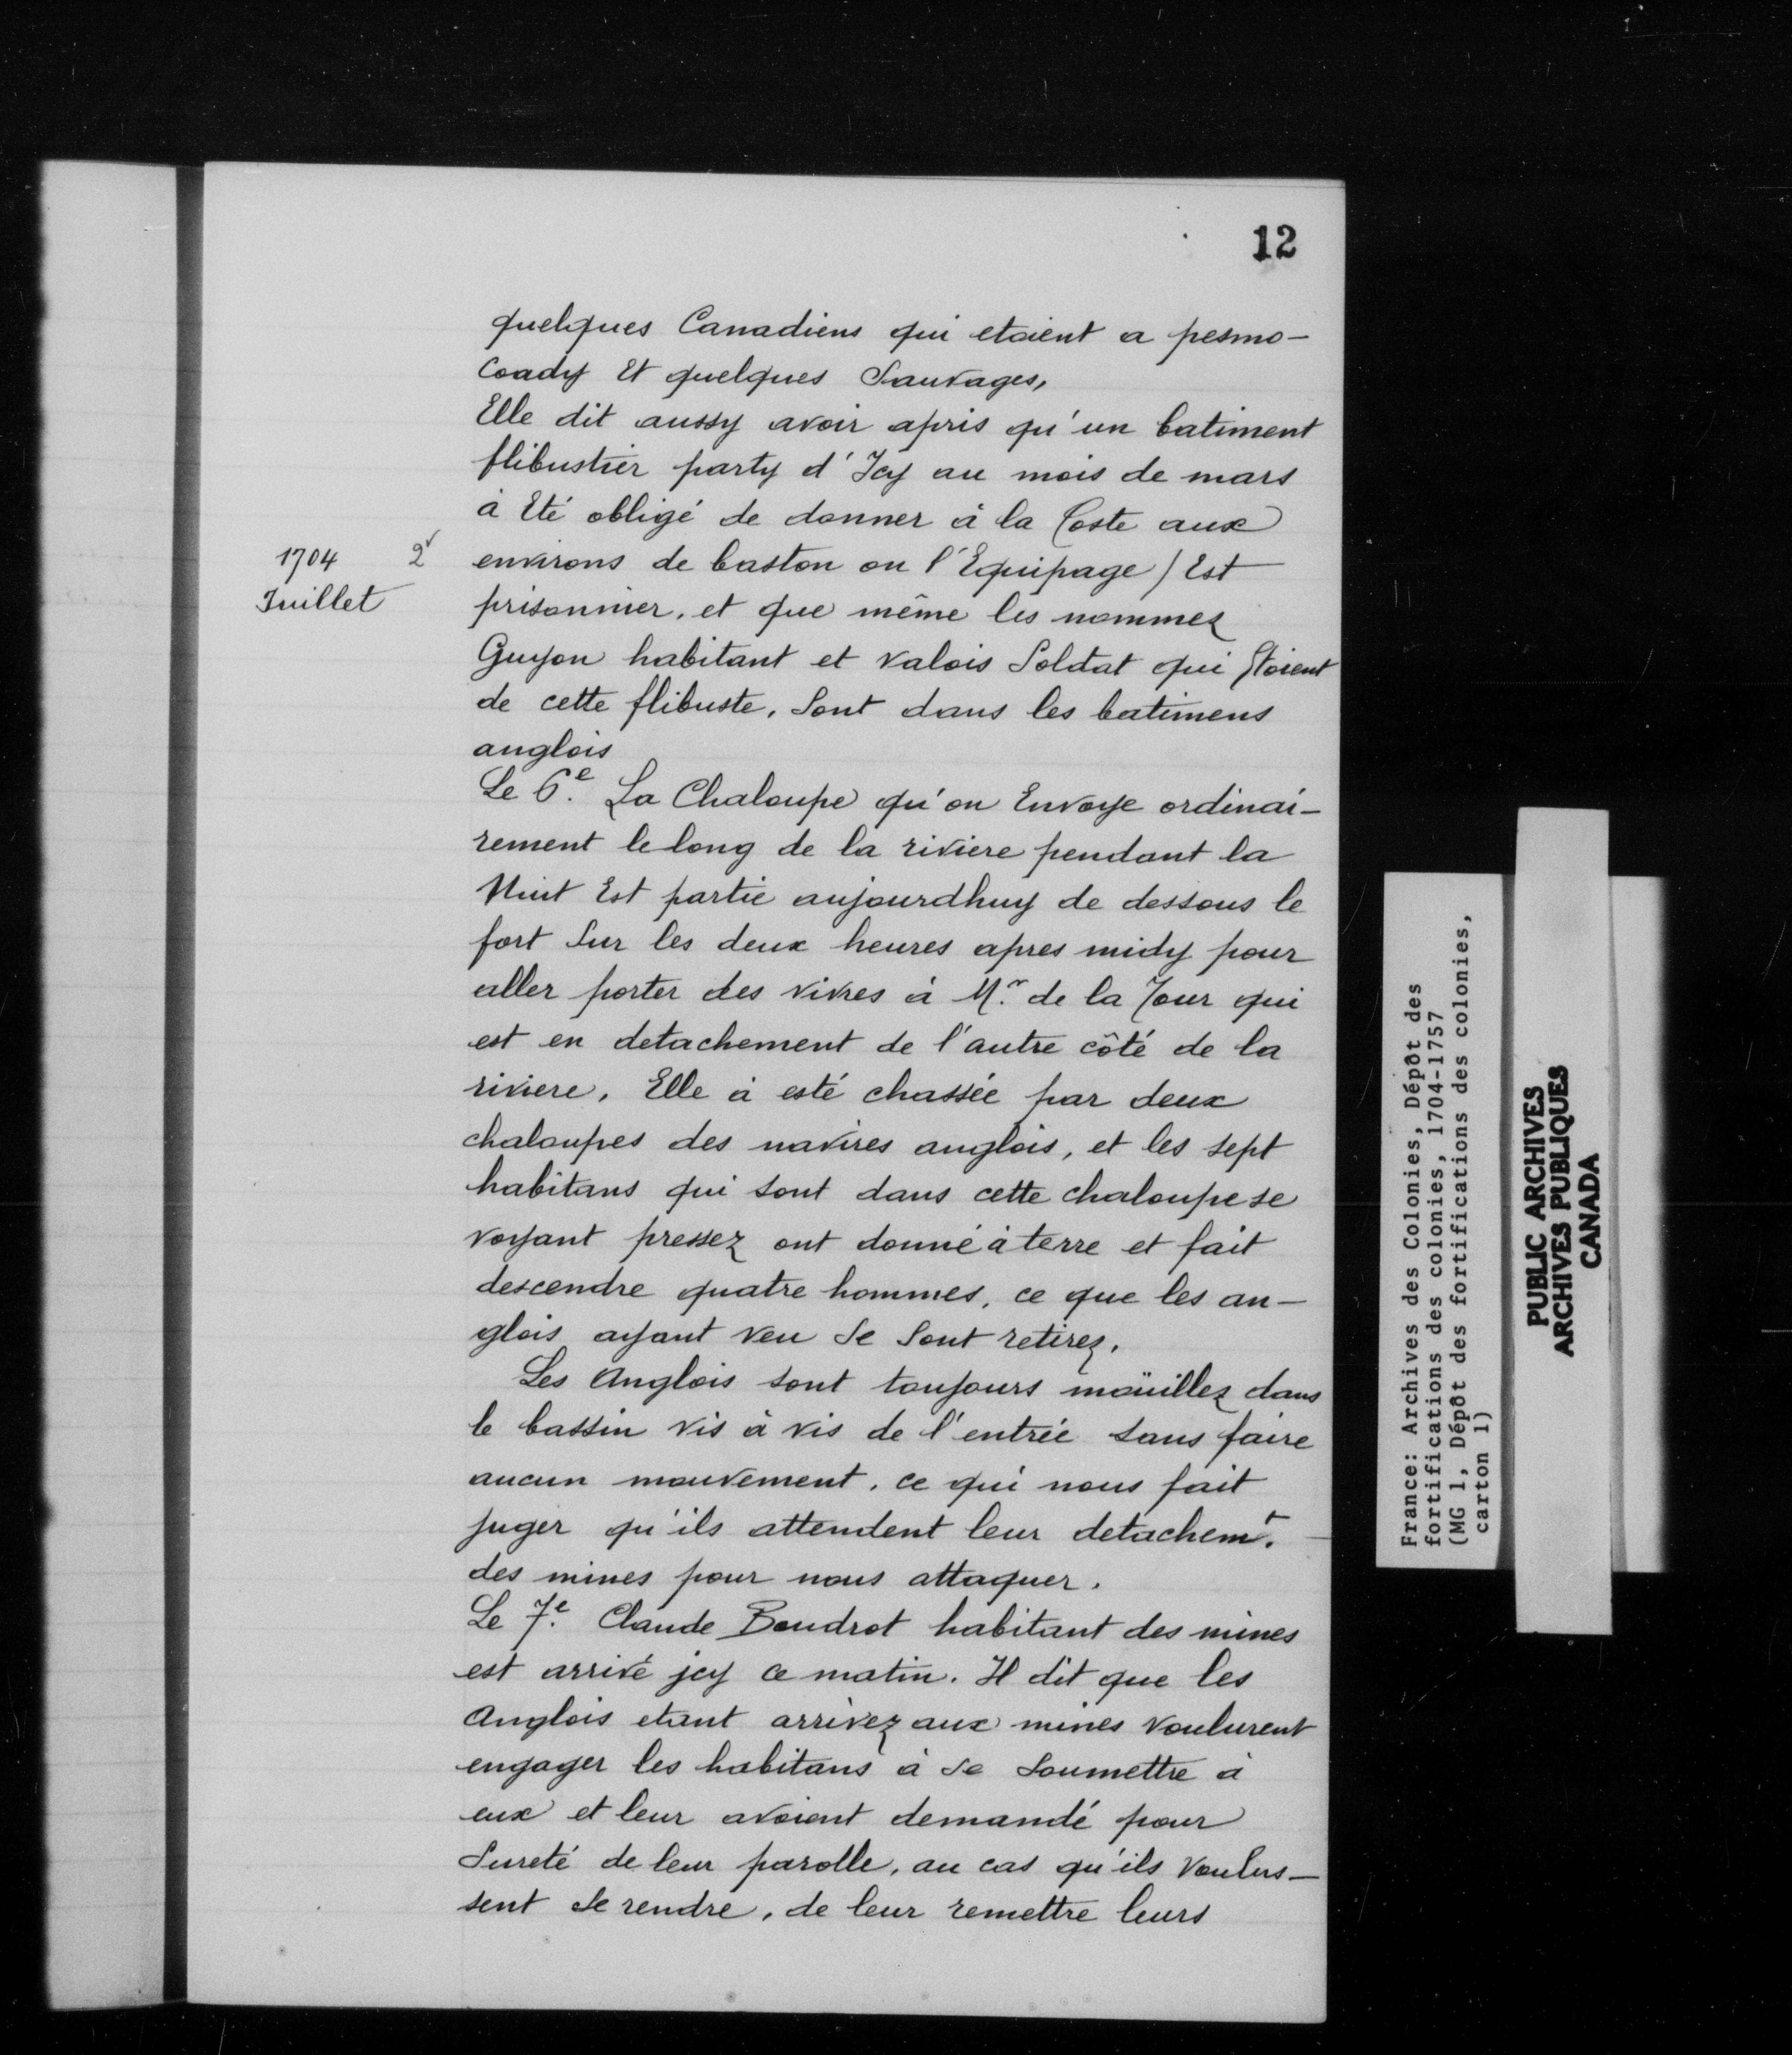 12
quelques Canadiens qui etoient a pesmo-
Coady Et quelques Sauvages,
Elle dit aussy avoir apris qu'un batiment
flibustier party d'Icy au mois de mars
à Eté obligé de donner à la Coste aux
1704 2v environs de baston ou l'Equipage / Est
Juillet prisonnier, et que même les nommez
Guyon habitant et valois Soldat qui Etoient
de cette flibuste, Sont dans les batimens
anglois
Le 6e. La Chaloupe qu'on Envoye ordinai-
rement le long de la riviere pendant la
Nuit Est partie aujourdhuy de dessous le
fort Sur les deux heures apres midy pour
aller porter des vivres à Mr. de la Tour qui
est en detachement de l'autre côté de la
riviere. Elle à esté chassée par deux
chaloupes des navires anglois, et les sept
habitans qui sont dans cette chaloupe se
voyant pressez ont donné à terre et fait
descendre quatre hommes, ce que les an-
glois ayant veu Se Sont retirez.
Les Anglois sont toujours moüillez dans
le bassin vis à vis de l'entrée sans faire
aucun mouvement, ce qui nous fait
juger qu'ils attendent leur detachemt.
des mines pour nous attaquer.
Le 7e. Claude Boudrot habitant des mines
est arrivé jcy ce matin. Il dit que les
Anglois etant arrivez aux mines voulurent
engager les habitans à Se Soumettre à
eux et leur avoient demandé pour
Sureté de leur parolle, au cas qu'ils voulus-
sent Se rendre, de leur remettre leurs
France: Archives des Colonies, Dépôt des
fortifications des colonies, 1704-1757
(MG 1, Dépôt des fortifications des colonies,
carton 1)
PUBLIC ARCHIVES
ARCHIVES PUBLIQUES
CANADA